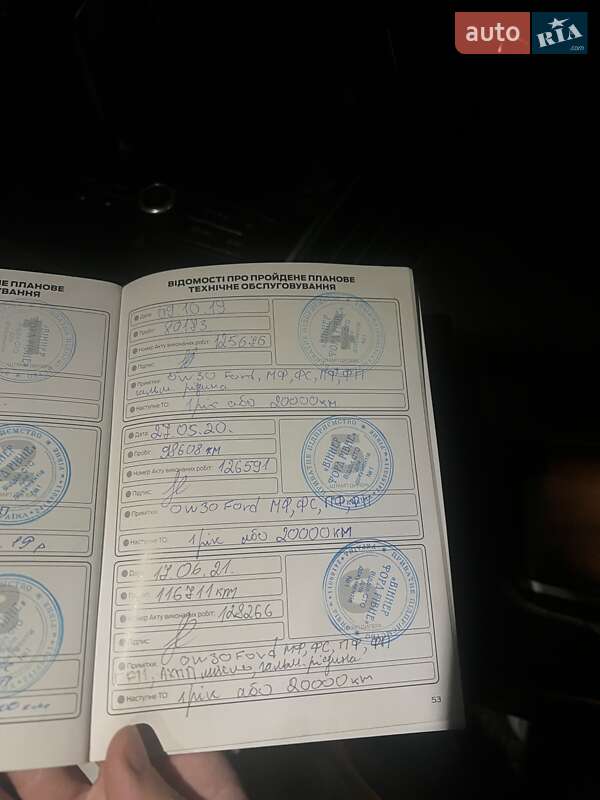 auto RIA .com
НЕ ПЛАНОВЕ
УВАННЯ
ВІДОМОСТІ ПРО ПРОЙДЕНЕ ПЛАНОВЕ
ТЕХНІЧНЕ ОБСЛУГОВУВАННЯ
Дата: 09.10.19
Пробіг: 80183
Номер Акту виконаних робіт: 125676
Підпис:
Примітки: 0W30 Ford, МФ, ФС, ПФ, ФП
гальм. рідина
Наступне ТО: 1 рік або 20000 км
Дата: 27.05.20.
Пробіг: 98608 км
Номер Акту виконаних робіт: 126591
Підпис:
Примітки: 0W30 Ford, МФ, ФС, ПФ, ФП
Наступне ТО: 1 рік або 20000 км
Дата: 17.06.21.
116711 km
Номер Акту виконаних робіт: 128266
Підпис:
Примітки: 0W30 Ford МФ, ФС, ПФ, ФП
АКПП масло, гальм. рідина
Наступне ТО: 1 рік або 20000 km
53